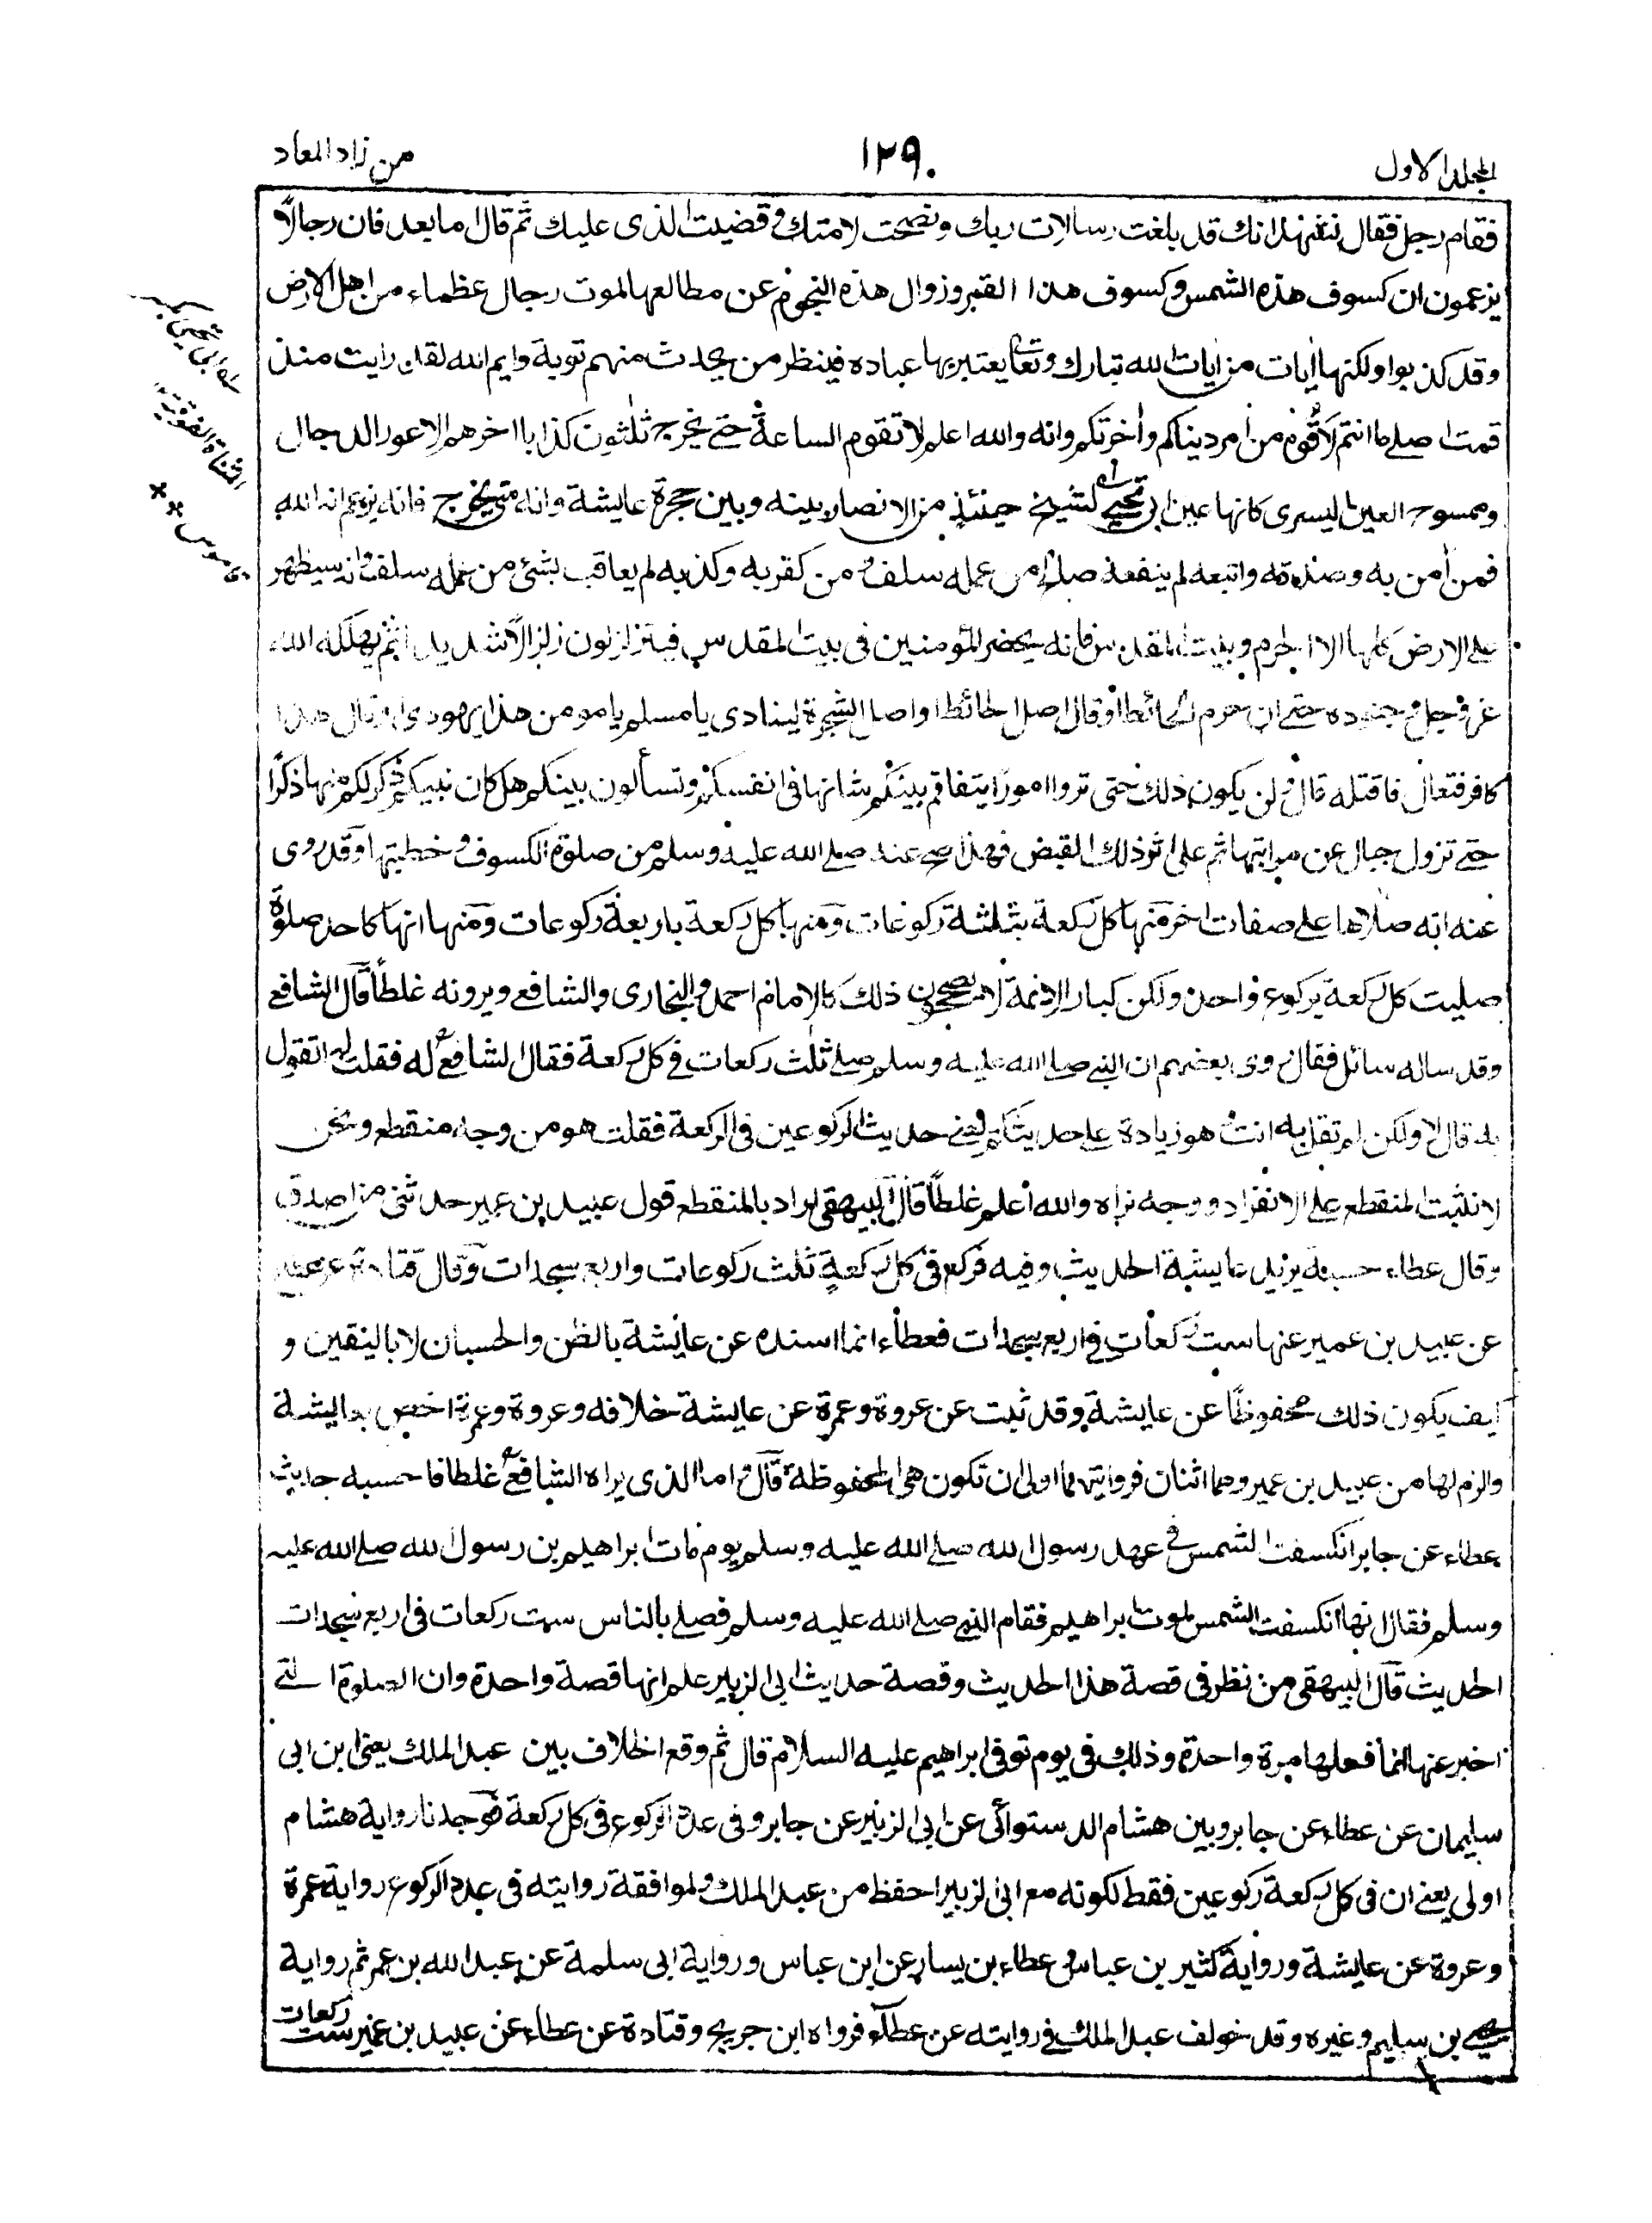 المجلد الاول
١٢٩٠
من زاد المعاد
فقام رجل فقال نشهد انك قد بلغت رسالات ربك ونصحت لامتك وقضيت الذى عليك ثم قال ما بعد فان رجالا
يزعمون ان كسوف هذه الشمس وكسوف هذا القمر وزوال هذه النجوم عن مطالعها لموت رجال عظماء من اهل الارض
وقد كذبوا ولكنها اٰيات من اٰيات الله تبارك وتعا يعتبر بها عباده فينظر من يحدث منهم توبة وايم الله لقد رايت منذ
قمت اصلے ما انتم لاقوه من امر دينكم واٰخرتكم وانه والله اعلم لا تقوم الساعة حتے يخرج ثلٰثون كذابا اخرهم الاعور الدجال
وممسوح العين اليسرى كانها عين ابى تحيى لشيخ حينئذ من الانصار بينه وبين حجرة عايشة وانه متى يخرج فانه يزعم انه الله
فمن اٰمن به وصدقه واتبعه لم ينفعه صلح من عمله سلف ومن كفر به وكذبه لم يعاقب بشئ من عمله سلف وانه سيظهر
علے الارض كلها الا الحرم وبيت المقدس فانه يحضر المؤمنين فى بيت المقدس فيتزلزلون زلزالا شديدا ثم يهلكه الله
عز وجل وجنوده حتے ان جرم الحائط او قال اصل الحائط او اصل الشجرة لينادى يا مسلم يا مومن هذا يهودى او قال هذا
كافر فتعال فاقتله قال ولن يكون ذلك حتى تروا امورا يتفاقم بينكم شانها فى انفسكم وتسألون بينكم هل كان نبيكم ذكر لكم منها ذكرًا
حتے تزول جبال عن مراتبها ثم على اثر ذلك القبض فهذا صح عنه صلے الله عليه وسلم من صلوة الكسوف وخطبتها وقد روى
عنه انه صلاها على صفات اخر منها كل ركعة بثلثة ركوعات ومنها كل ركعة باربعة ركوعات ومنها انها كاحد صلوة
صليت كل ركعة بركوع واحد ولكن كبار الائمة لا يصححون ذلك كالامام احمد والبخارى والشافعے ويرونه غلطًا قال الشافعے
وقد ساله سائل فقال روى بعضهم ان النبے صلے الله عليه وسلم صلے ثلٰث ركعات فے كل ركعة فقال الشافعے له فقلت له اتقول
به قال لا ولكن لم تقل به انت وهو زيادة علے حديثكم يعنے حديث الركوعين فى الركعة فقلت هو من وجه منقطع ونحن
لا نثبت المنقطع علے الانفراد ووجه نراه والله اعلم غلطًا قال البيهقى اراد بالمنقطع قول عبيد بن عمير حدثنى من اصدق
وقال عطاء حسبته يريد عايشة الحديث وفيه فركع فى كل ركعة ثلٰث ركوعات واربع سجدات وقال قتادة عن عطاء
عن عبيد بن عمير عنها ست ركعات فے اربع سجدات فعطاء انما اسنده عن عايشة بالظن والحسبان لا باليقين و
كيف يكون ذلك محفوظا عن عايشة وقد ثبت عن عروة وعمرة عن عايشة خلافه وعروة وعمرة اخص بعايشة
والزم لها من عبيد بن عمير وهما اثنان فروايتهما اولى ان تكون هى المحفوظة قال واما الذى يراه الشافعے غلطا فاحسبه حديث
عطاء عن جابر انكسفت الشمس فے عهد رسول الله صلے الله عليه وسلم يوم مات ابراهيم بن رسول الله صلے الله عليه
وسلم فقال انها انكسفت الشمس لموت ابراهيم فقام النبے صلے الله عليه وسلم فصلے بالناس ست ركعات فى اربع سجدات
الحديث قال البيهقى من نظر فى قصة هذا الحديث وقصة حديث ابى الزبير علم انها قصة واحدة وان الصلوة التے
اخبر عنها انما فعلها مرة واحدة وذلك فى يوم توفى ابراهيم عليه السلام قال ثم وقع الخلاف بين عبد الملك يعنى ابن ابى
سليمان عن عطاء عن جابر وبين هشام الدستوائى عن ابى الزبير عن جابر وفى عدد الركوع فى كل ركعة فوجدنا رواية هشام
اولى يعنے ان فى كل ركعة ركوعين فقط لكونه مع ابى الزبير احفظ من عبد الملك ولموافقة روايته فى عدد الركوع رواية عمرة
وعروة عن عايشة ورواية كثير بن عباس وعطاء بن يسار عن ابن عباس ورواية ابى سلمة عن عبد الله بن عمر ثم رواية
يحيے بن سليم وغيره وقد خولف عبد الملك فے روايته عن عطاء فرواه ابن جريج وقتادة عن عطاء عن عبيد بن عمير ست ركعات